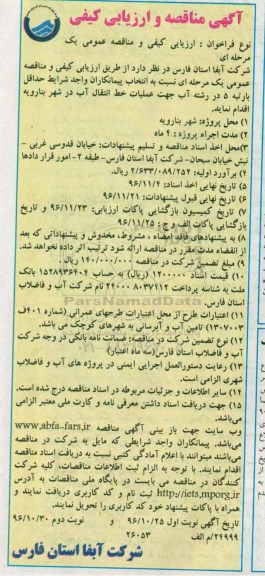 آگهی مناقصه و ارزیابی کیفی
نوع فراخوان : ارزیابی کیفی و مناقصه عمومی یک
مرحله ای
شرکت آبفا استان فارس در نظر دارد از طریق ارزیابی کیفی و مناقصه
عمومی یک مرحله ای نسبت به انتخاب پیمانکاران واجد شرایط حداقل
بارتبه ۵ در رشته آب جهت عملیات خط انتقال آب در شهر بنارویه
اقدام نماید.
۱) محل پروژه: شهر بنارویه
۲) مدت اجراء پروژه : ۴ ماه
۳)محل اخذ اسناد مناقصه و تسلیم پیشنهادات: خیابان قدوسی غربی -
نبش خیابان سبحان- شرکت آبفا استان فارس- طبقه ۲- امور قرار دادها
۴) برآورد اولیه: ۲/۶۳۳/۰۸۹/۲۵۲ ریال.
۵) تاریخ نهایی اخذ اسناد: ۹۶/۱۱/۴
۶) تاریخ نهایی قبول پیشنهادات: ۹۶/۱۱/۲۱
۷) تاریخ کمیسیون بازگشایی پاکات ارزیابی: ۹۶/۱۱/۲۳ و تاریخ
بازگشایی پاکات الف و ج : ۹۶/۱۱/۲۵
۸) به پیشنهادهای فاقد امضاء ، مشروط، مخدوش و پیشنهاداتی که بعد
از انقضاء مدت مقرر در مناقصه ارائه شود ترتیب اثر داده نخواهد شد.
۹) مبلغ تضمین شرکت در مناقصه ۱۴۰/۰۰۰/۰۰۰ ریال .
۱۰) قیمت اسناد ۱۲۰۰۰۰۰ (ریال) به حساب ۱۵۲۸۹۳۶۴۰۴ بانک
ملت به شناسه پرداخت ۸۰۳۷۱۱۲ ۲۴۰۰۰ نام شرکت آب و فاضلاب
استان فارس.
۱۱) اعتبارات طرح از محل اعتبارات طرحهای عمرانی (شماره ۴۰۱ف
۱۳۰۷۰۰۳) تامین آب و آبرسانی به شهرهای کوچک می باشد.
۱۲) نوع تضمین شرکت در مناقصه: ضمانت نامه بانکی در وجه شرکت
آب و فاضلاب استان فارس(سه ماه اعتبار)
۱۳) رعایت دستورالعمل اجرایی ایمنی در پروژه های آب و فاضلاب
شهری الزامی است.
۱۴) سایر اطلاعات و جزئیات مربوطه در اسناد مناقصه درج شده است.
۱۵) جهت دریافت اسناد داشتن معرفی نامه و کارت ملی معتبر الزامی
می‌باشد.
وب سایت جهت باز بینی آگهی مناقصه www.abfa-fars.ir
می‌باشد. پیمانکاران واجد شرایطی که مایل به شرکت در مناقصه
می‌باشند میتوانند با اعلام آمادگی کتبی نسبت به دریافت اسناد مناقصه
اقدام نمایند. با توجه به الزام ثبت اطلاعات مناقصات، کلیه شرکت
کنندگان در مناقصه می بایست در پایگاه ملی مناقصات به آدرس
http://iets.mporg.ir ثبت نام و کد کاربری دریافت نمایند و
همراه با پاکات پیشنهاد خود کد کاربری را تحویل نمایند.
تاریخ آگهی نوبت اول ۹۶/۱۰/۲۵ و نوبت دوم ۹۶/۱۰/۳۰
۲۴۹۹۹/م الف ۲۶۰۵۳
شرکت آبفا استان فارس
ParsNamadData